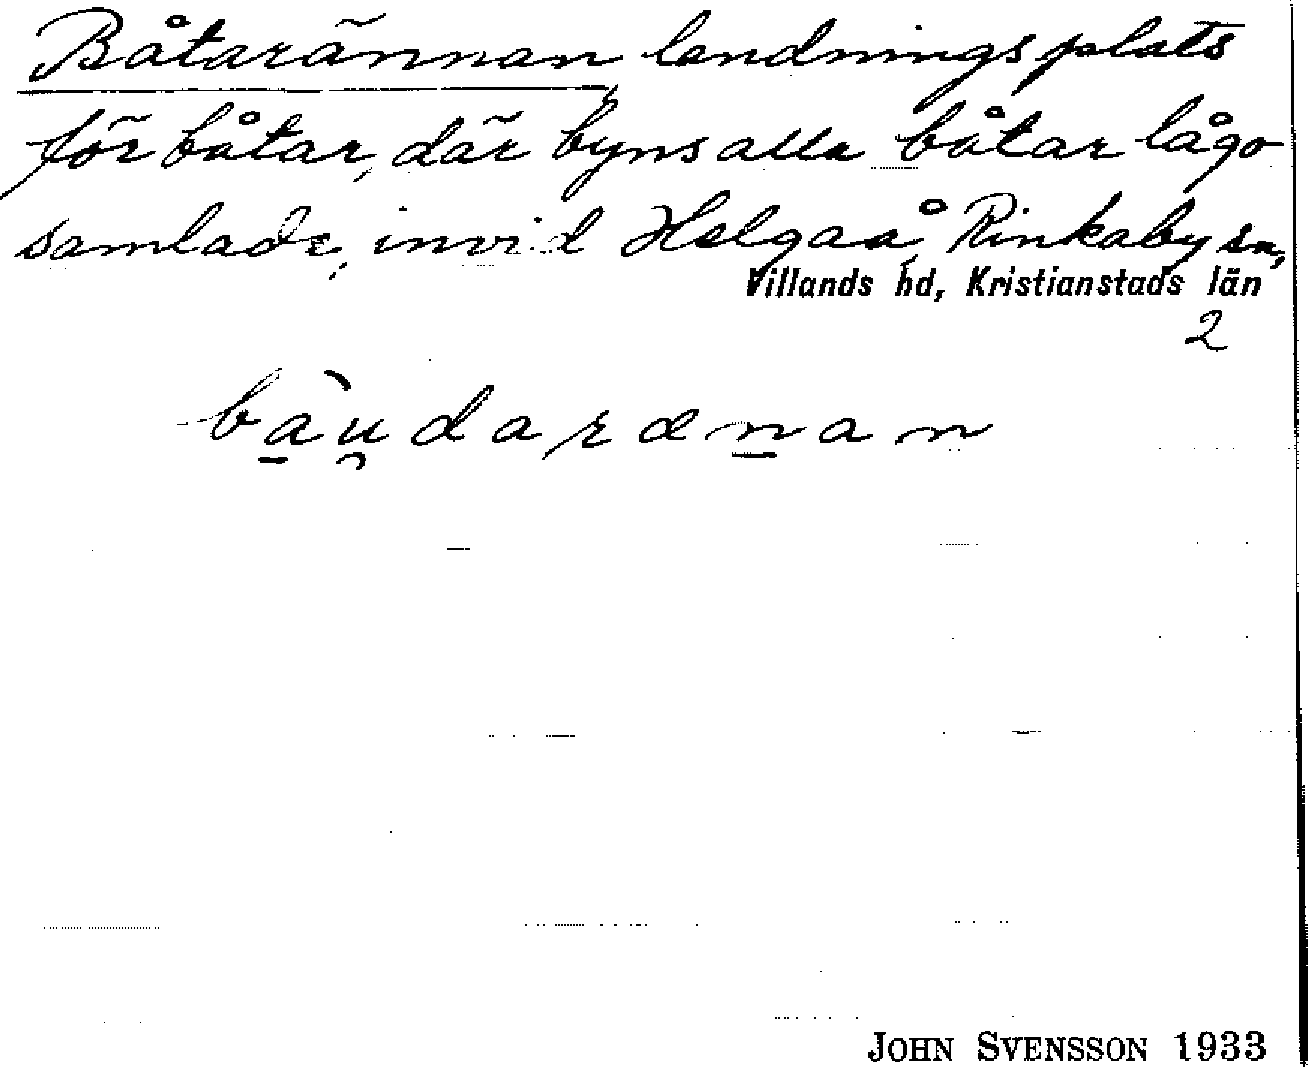 Båtarännan landningsplats
för båtar, där byns alla båtar lågo
samlade, invid Helgaå, Rinkaby sn,
Villands hd, Kristianstads län
2
baù̯darænan
JOHN SVENSSON 1933